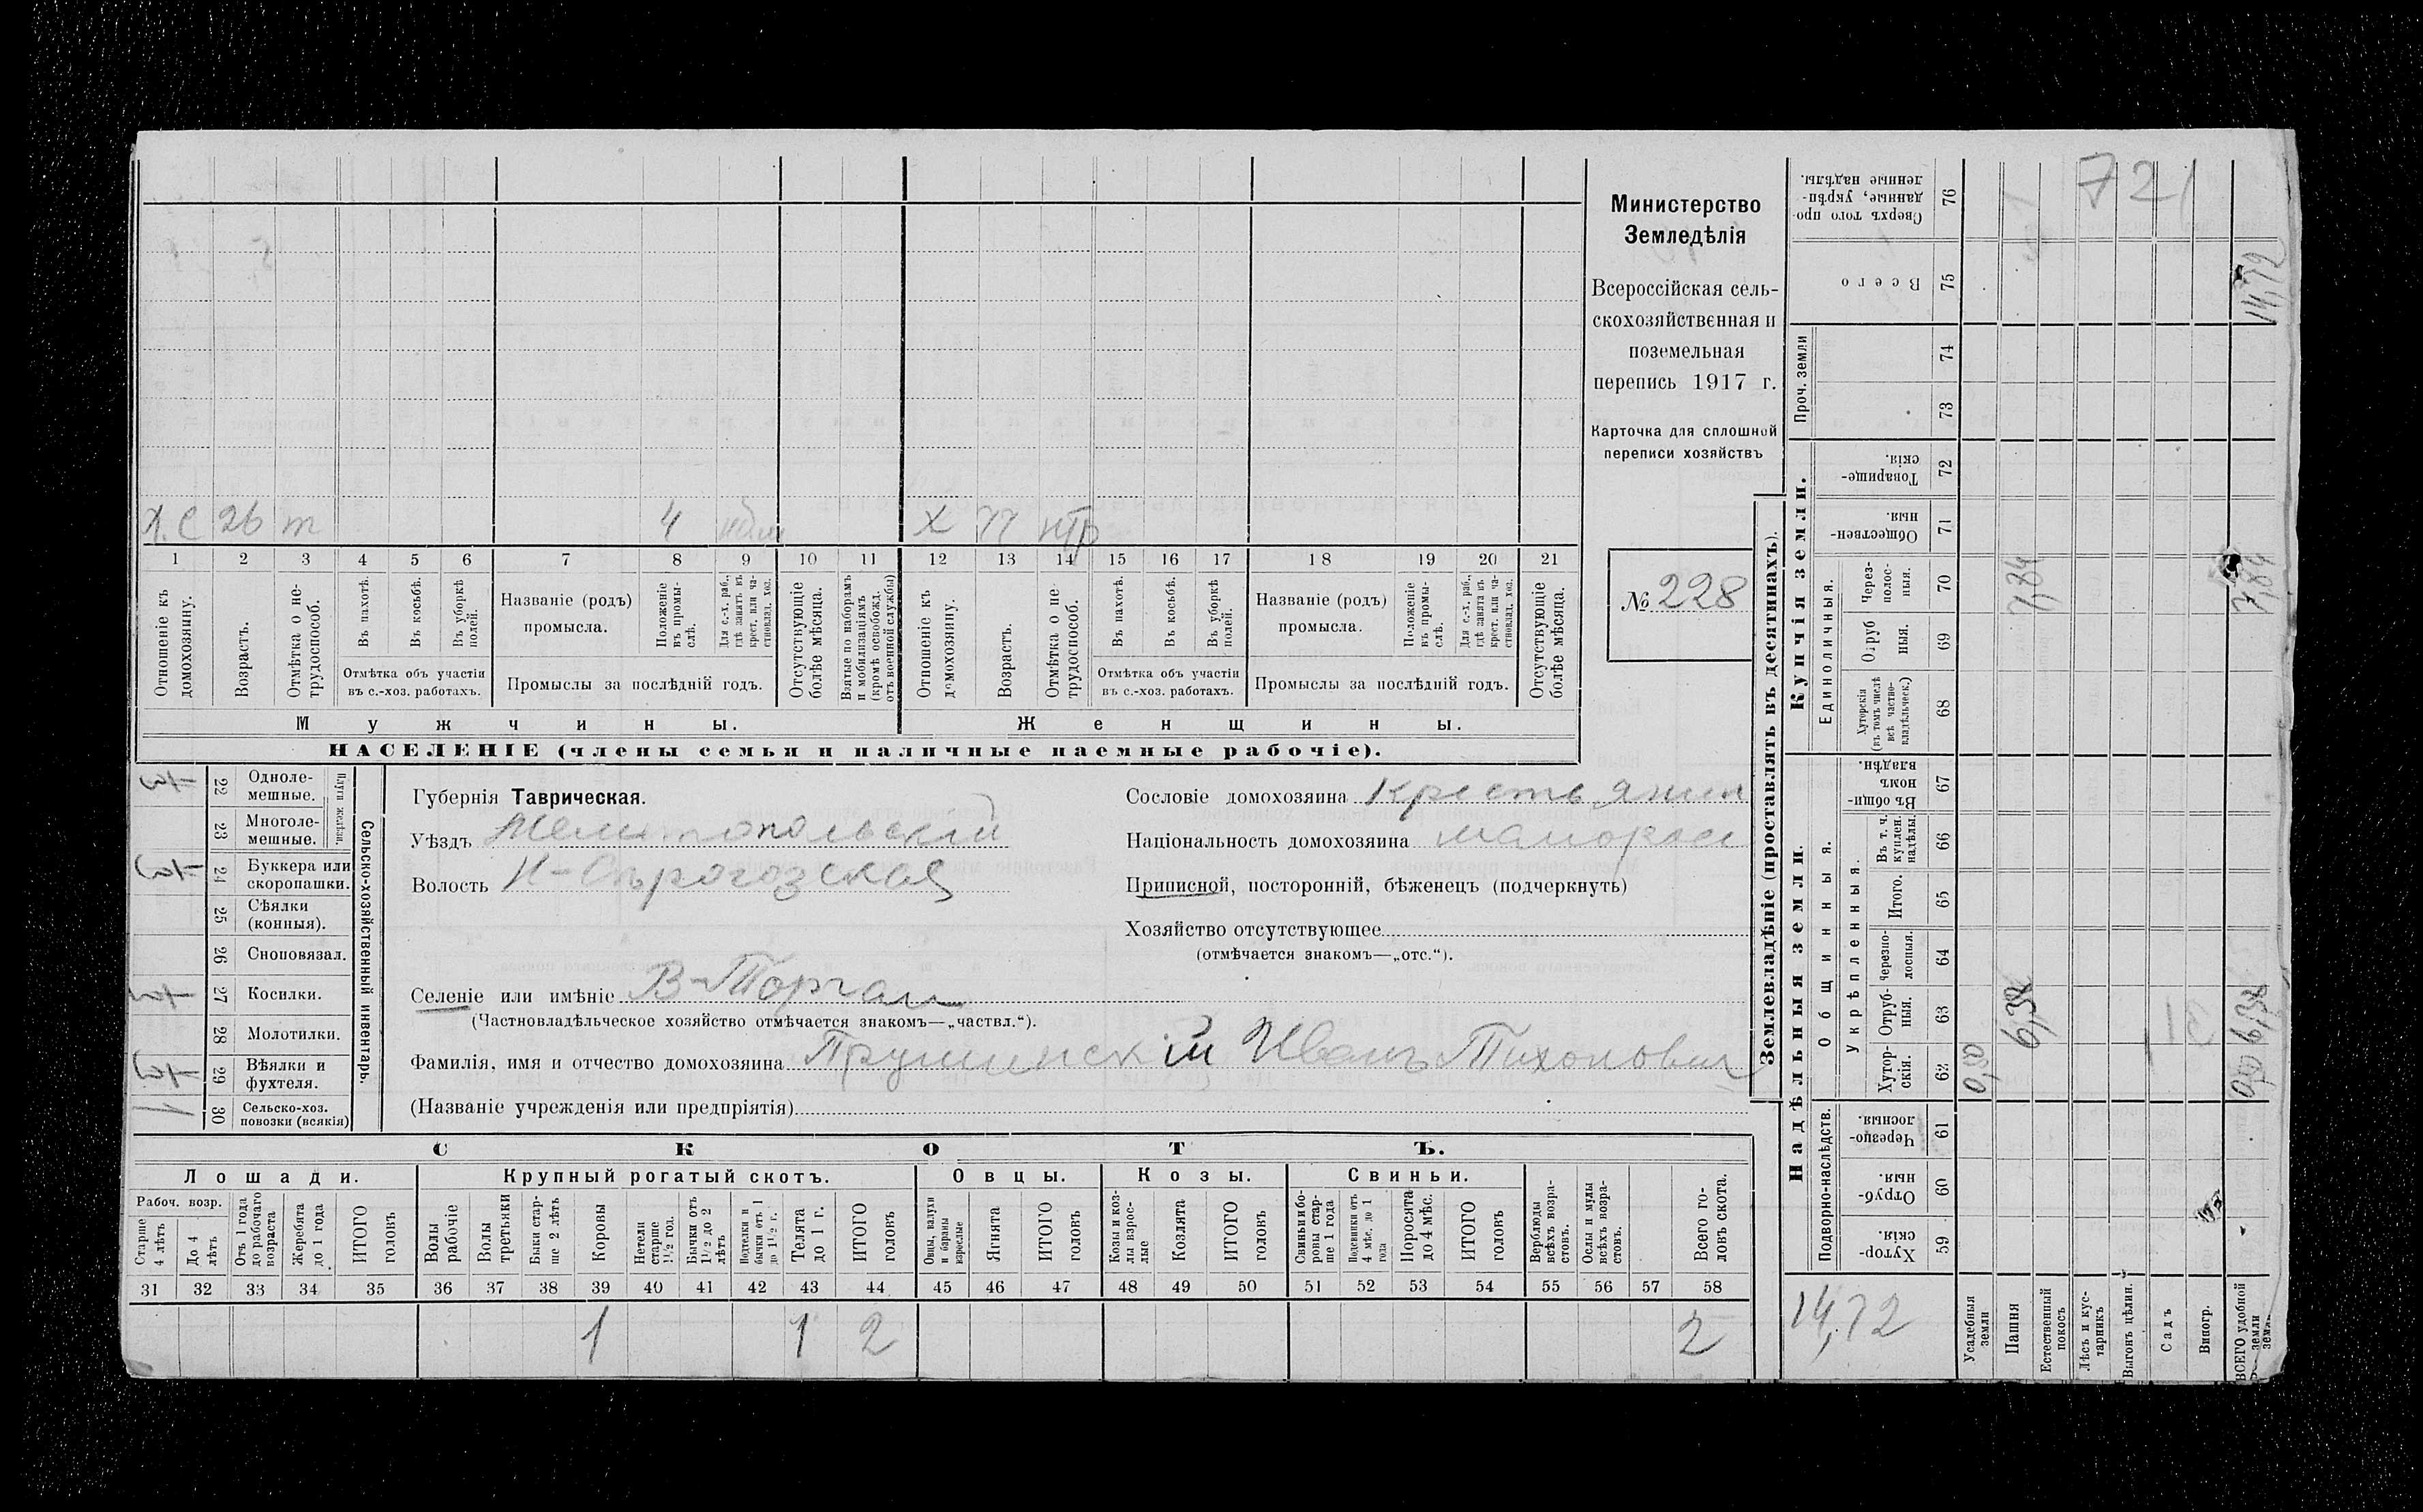 Министерство
Земледѣлія
Всероссійская сель-
скохозяйственная и
поземельная
перепись 1917 г.
Карточка для сплошной
переписи хозяйствъ
№ 228
Х.С 26 т 4 Х 77 нтр
1 2 3 4 5 6 7 8 9 10 11 12 13 14 15 16 17 18 19 20 21
Отношеніе къ домохозяину.
Возрастъ.
Отмѣтка о не-трудоспособ.
Въ пахотѣ.
Въ косьбѣ.
Въ уборкѣ полей.
Отмѣтка объ участіи
въ с.-хоз. работахъ.
Названіе (родъ)
промысла.
Положеніе въ промы-слѣ.
Для с.-х. раб., гдѣ занятъ въ крест. или ча-стновлад. хоз.
Промыслы за послѣдній годъ.
Отсутствующіе болѣе мѣсяца.
Взятые по наборамъ и мобилизаціямъ (кромѣ освобожд. отъ военной службы)
Отношеніе къ домохозяину.
Возрастъ.
Отмѣтка о не трудоспособ.
Въ пахотѣ.
Въ косьбѣ.
Въ уборкѣ полей.
Отмѣтка объ участіи
въ с.-хоз. работахъ.
Названіе (родъ)
промысла.
Положеніе въ промы-слѣ.
Для с.-х. раб., гдѣ занята въ крест. или ча-стновлад. хоз.
Промыслы за послѣдній годъ.
Отсутствующіе болѣе мѣсяца.
Мужчины.
Женщины.
НАСЕЛЕНІЕ (члены семьи и наличные наемные рабочіе).
22 Одноле-мешные.
23 Многоле-мешные.
Плуги желѣзн.
24 Буккера или скоропашки.
25 Сѣялки (конныя).
26 Сноповязал.
27 Косилки.
28 Молотилки.
29 Вѣялки и фухтеля.
30 Сельско-хоз. повозки (всякія)
Сельско-хозяйственный инвентарь.
Губернія Таврическая.
Уѣздъ Мелитопольскій
Волость Н-Сѣрогозская
Селеніе или имѣніе В-Торгаи
(Частновладѣльческое хозяйство отмѣчается знакомъ—„частвл.“).
Фамилія, имя и отчество домохозяина Трушинскій Иванъ Тихонович
(Названіе учрежденія или предпріятія)
Сословіе домохозяина Крестьянин
Національность домохозяина малоросс
Приписной, посторонній, бѣженецъ (подчеркнуть)
Хозяйство отсутствующее
(отмѣчается знакомъ—„отс.“).
СКОТЪ.
Лошади. Крупный рогатый скотъ. Овцы. Козы. Свиньи.
Рабоч. возр.
Старше 4 лѣтъ
До 4 лѣтъ
Отъ 1 года до рабочаго возраста
Жеребята до 1 года
ИТОГО головъ
Волы рабочіе
Волы третьяки
Быки стар-ше 2 лѣтъ
Коровы
Нетели старше 1½ год.
Бычки отъ 1½ до 2 лѣтъ
Подтелки и бычки отъ 1 до 1½ г.
Телята до 1 г.
ИТОГО головъ
Овцы, валухи и бараны взрослые
Ягнята
ИТОГО головъ
Козы и коз-лы взрос-лые
Козлята
ИТОГО головъ
Свиньи и бо-ровы стар-ше 1 года
Подсвинки отъ 4 мѣс. до 1 года
Поросята до 4 мѣс.
ИТОГО головъ
Верблюды всѣхъ возра-стовъ.
Ослы и мулы всѣхъ возра-стовъ.
Всего го-ловъ скота.
31 32 33 34 35 36 37 38 39 40 41 42 43 44 45 46 47 48 49 50 51 52 53 54 55 56 57 58
1 1 2 2
Землевладѣніе (проставлять въ десятинахъ).
Надѣльныя земли.
Купчія земли.
Проч. земли
Подворно-наслѣдств.
Общинныя.
Укрѣпленныя.
Единоличныя.
Хутор-скія. 59
Отруб-ныя. 60
Черезпо-лосныя. 61
Хутор-скія. 62
Отруб-ныя. 63
Черезпо-лосныя. 64
Итого. 65
Въ т. ч. куплен. надѣлы. 66
Въ общи-номъ владѣн. 67
Хуторскія (въ томъ числѣ всѣ частно-владѣльческ.) 68
Отруб ныя. 69
Через-полос-ныя. 70
Обществен-ныя. 71
Товарище-скія. 72
73
74
Всего 75
Сверхъ того про-данные, укрѣп-ленные надѣлы. 76
721
14,72
Усадебныя земли 0,50
Пашня 6,38 7,84
Естественный покосъ
Лѣсъ и кус-тарникъ
Выгонъ цѣлин.
Садъ
Виногр.
ВСЕГО удобной земли 0,50 6,38 7,84 14,72